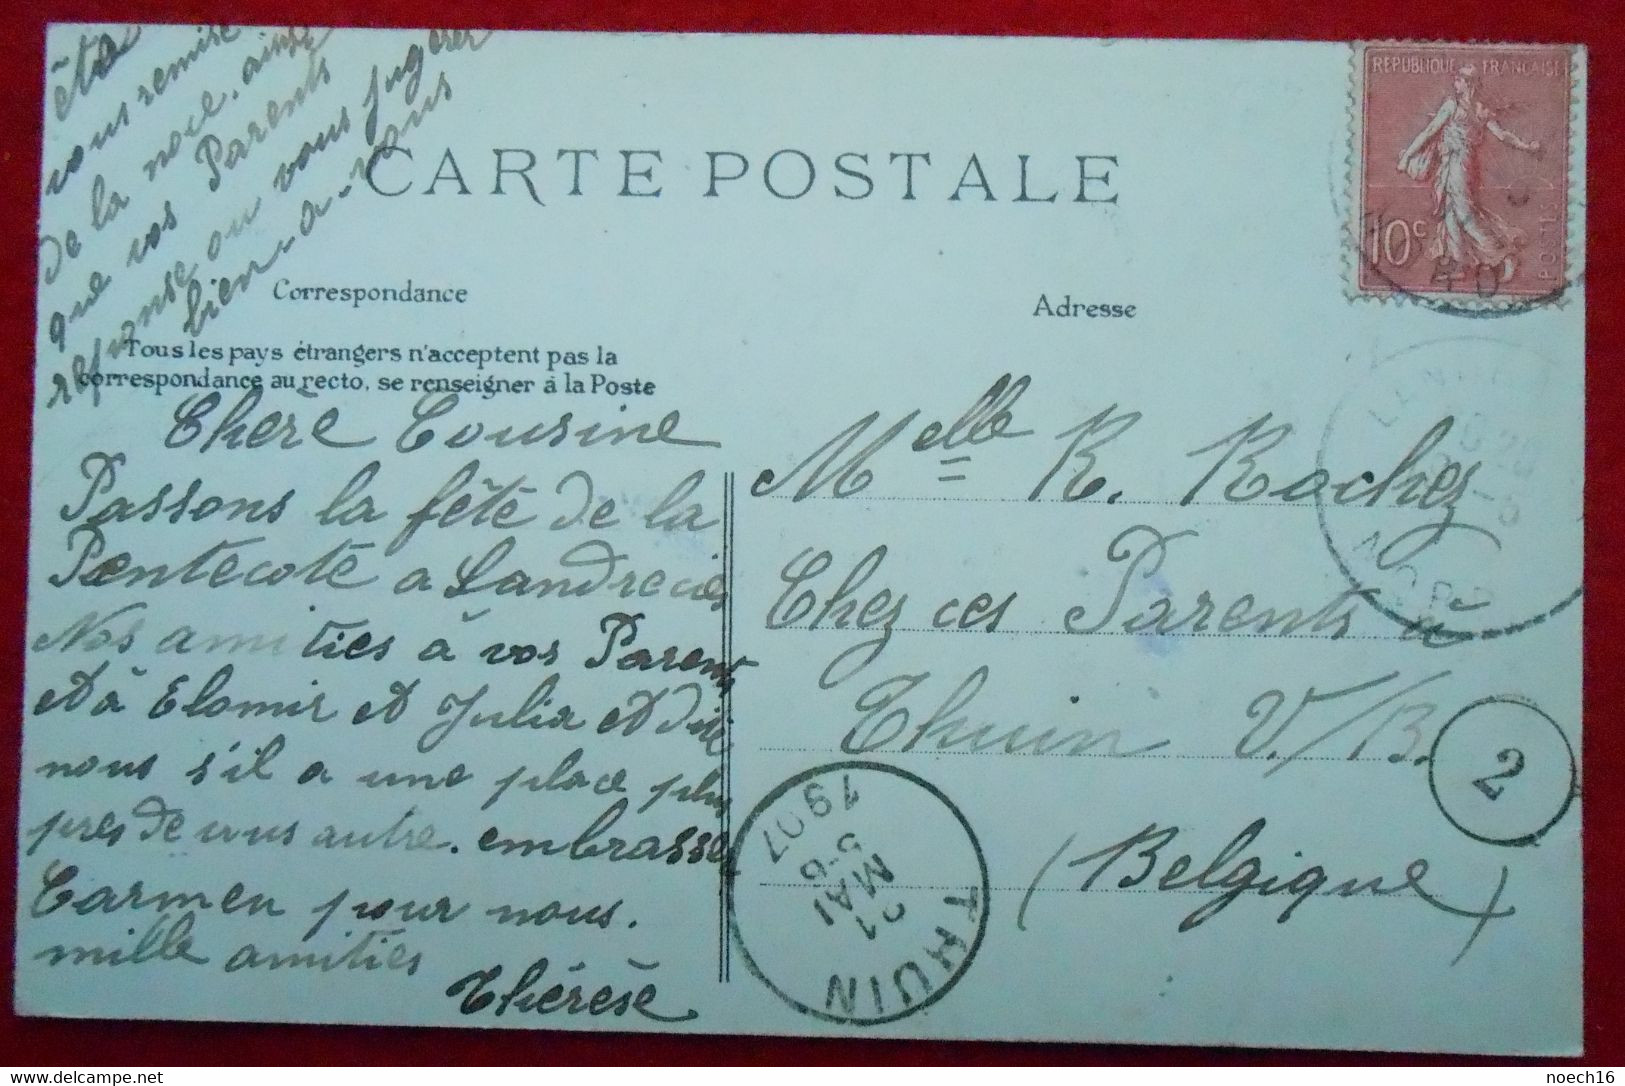 êtes
vous remise
de la noce. ainsi
que vos Parents
reponse ou vous jugerer
bien a-vous
CARTE POSTALE
REPUBLIQUE FRANÇAISE
10c
POSTES
Correspondance
Adresse
Tous les pays étrangers n'acceptent pas la
correspondance au recto, se renseigner à la Poste
Chère Cousine
Passons la fête de la
Pentecote a Landrecies
Nos amities à vos Parents
et à Elomir et Julia et dite
nous s'il a une place plus
pres de vous autre. embrasser
Carmen pour nous.
mille amities
Thérèse
Melle R. Rochez
Chez ces Parents à
Thuin V./B.
(Belgique)
NORD
2
THUIN
21
MAI
5-6
1907
noech16